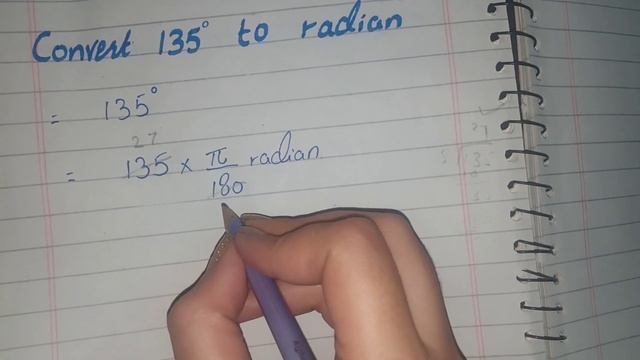 Convert 135° to radian
= 135°
27
= 135 × π/180 radian